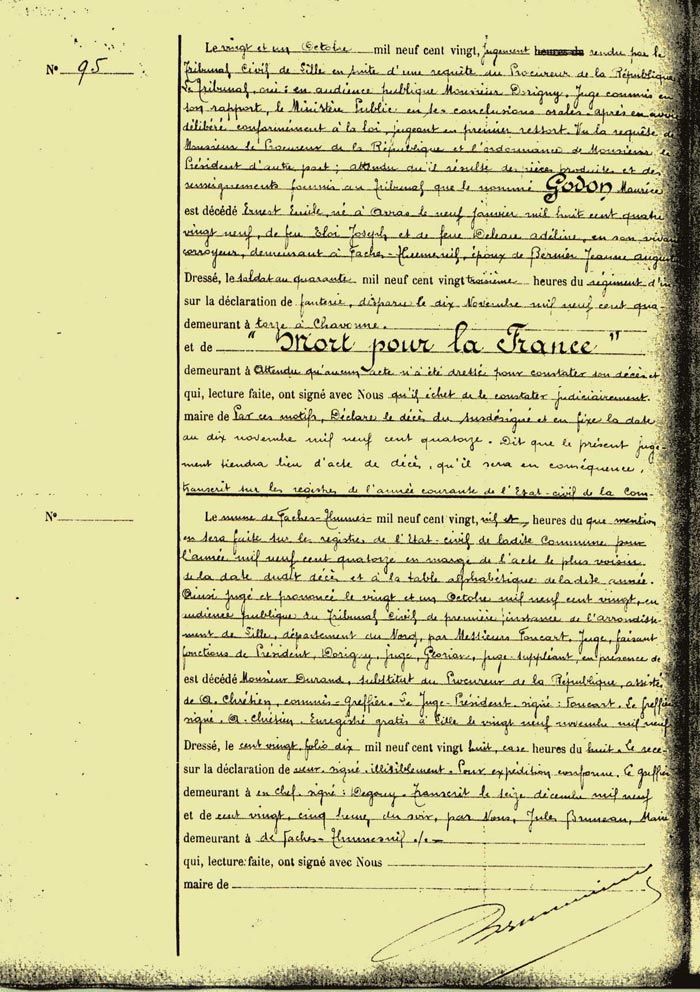 Le vingt et un Octobre mil neuf cent vingt, Jugement heures du rendu par le
N° 95
Tribunal Civil de Lille en suite d'une requête du Procureur de la République
Le Tribunal, oui : en audience publique Monsieur Dorigny, Juge commis en
son rapport, le Ministère Public en ses conclusions orales après en avoir
délibéré conformément à la loi, jugeant en premier ressort. Vu la requête de
Monsieur le Procureur de la République et l'ordonnance de Monsieur le
Président d'autre part ; attendu qu'il résulte des pièces produites et des
renseignements fournis au Tribunal que le nommé Godon Maurice
est décédé Ernest Emile, né à le neuf Janvier mil huit cent quatre
vingt neuf, de feu Eloi Joseph et de feue Deleau Adéline, en son vivant
corroyeur, demeurant à Faches-Thumesnil, époux de Bernier Jeanne Augusta
Dressé, le soldat au quarante mil neuf cent vingt troisième heures du régiment d'in
sur la déclaration de fanterie, disparu le dix Novembre mil neuf cent qua
demeurant à torze à Chavonne.
et de " Mort pour la France "
demeurant à Attendu qu'aucun acte n'a été dressée pour constater son décès et
qui, lecture faite, ont signé avec Nous qu'il échet de le constater judiciairement.
maire de Par ces motifs, Déclare le décès du susdésigné et en fixe la date
au dix novembre mil neuf cent quatorze. Dit que le présent juge-
ment tiendra lieu d'acte de décès, qu'il sera en conséquence,
transcrit sur les registres de l'année courante de l'Etat-civil de la Com-
N°
Le mune de Faches-Thumes- mil neuf cent vingt, nil et heures du que mention
en sera faite sur les registres de l'Etat-civil de ladite Commune pour
l'année mil neuf cent quatorze en marge de l'acte le plus voisin
de la date dudit décès et à la table alphabétique de ladite année.
Ainsi jugé et prononcé le vingt et un Octobre mil neuf cent vingt, en
audience publique du Tribunal Civil de première instance de l'arrondisse-
ment de Lille, département du Nord, par Messieurs Foucart, Juge, faisant
fonctions de Président, Dorigny, juge, juge-suppléant, en présence de
est décédé Monsieur Durand, substitut du Procureur de la République, assisté
de A. Chrétien, commis-Greffier. Le Juge-Président signé : Foucart. Le Greffier
signé. A. Chrétien. Enregistré gratis à Lille le vingt neuf novembre mil neuf
Dressé, le cent vingt folio dix mil neuf cent vingt huit, case heures du huit. Le rece-
sur la déclaration de veur signé illisiblement. Pour expédition conforme. Le greffier
demeurant à en chef signé : Degouy. Transcrit le seize décembre mil neuf
et de cent vingt, cinq heures du soir, par Nous, Jules Bruneau, Maire
demeurant à de Faches-Thumesnil ./.
qui, lecture faite, ont signé avec Nous
maire de